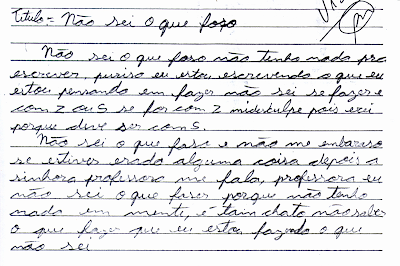 Titulo = Não sei o que faso
Visto
Não sei o que faso não tenho nada pra
escrever, purisa eu estou escrevendo o que eu
estou pensando em fazer não sei se fazer e
com z ou s se for com z midisculpe pois erei
porque deve ser com s.
Não sei o que faso e não me embaraso
se estiver erado alguma coisa depois a
sinhora professora me fala, professora eu
não sei o que faser porque não tenho
nada em mente, é taim chato não saber
o que fazer que eu estou fazendo o que
não sei